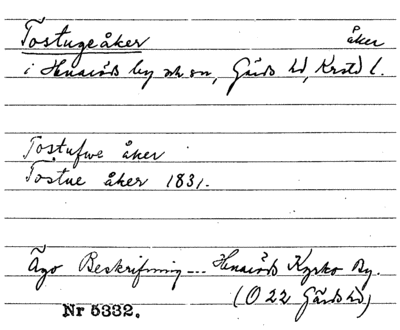 Tostugeåker åker
i Hnaröds by och sn, Gärds hd, Krstd l.
Tostufwe åker
Tostue åker 1831.
Ägo Beskrifning --- Hnaröds Kyrko By.
(O 22 Gärds hd)
Nr 5332.